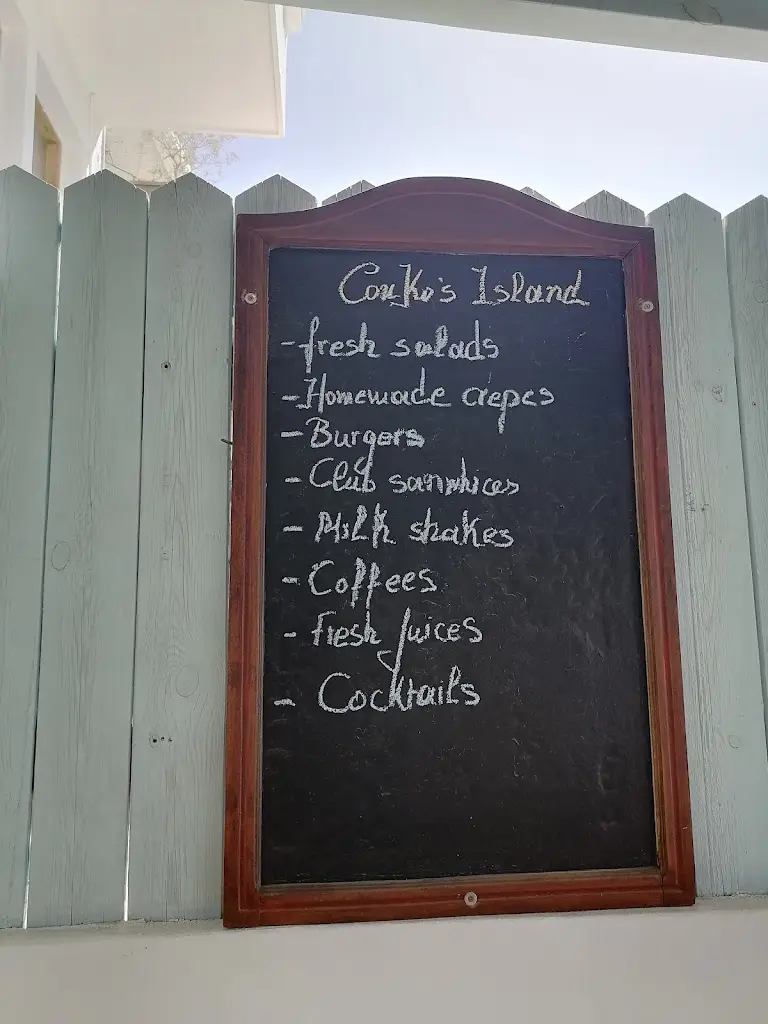 Couko's Island
- fresh salads
- Homemade crepes
- Burgers
- Club sanwhices
- Milk shakes
- Coffees
- Fresh juices
- Cocktails